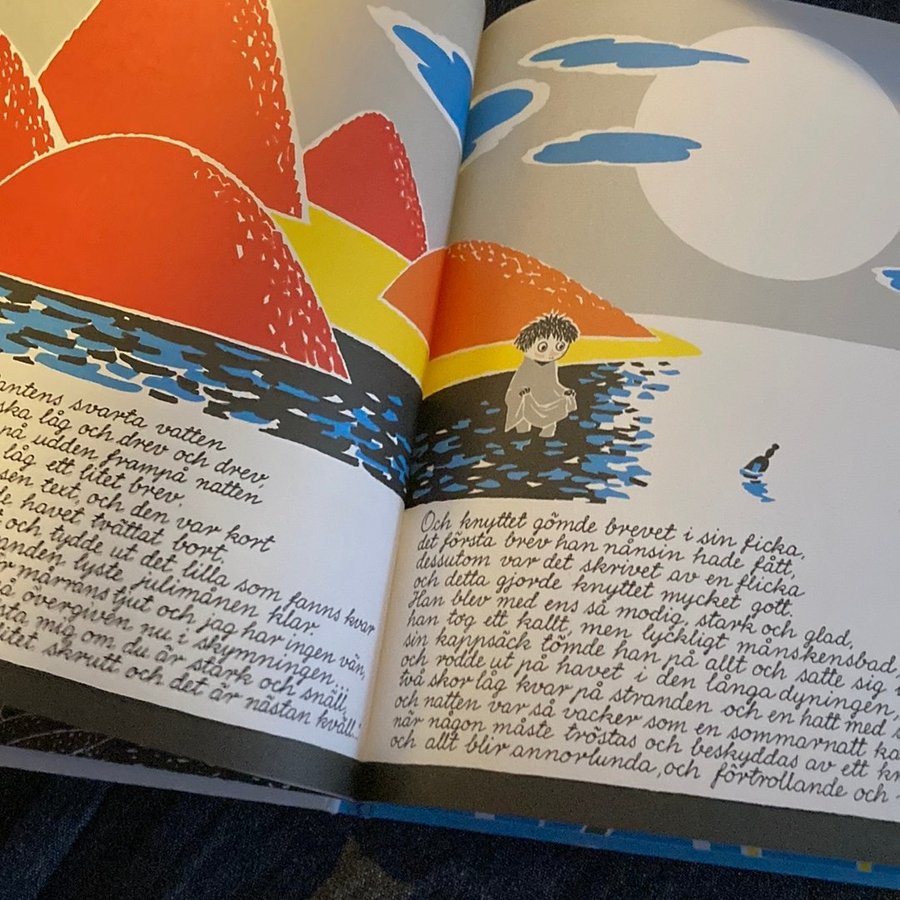 svarta vatten
låg och drev och drev
på udden frampå natten
låg ett litet brev.
sen text, och den var kort
havet tvättat bort,
och tydde ut det lilla som fanns kvar
lyste julimånen klar.
mårrans tjut och jag har ingen vän,
övergiven nu i skymningen...
mig om du är stark och snäll,
litet skrutt och det är nästan kväll.."
Och knyttet gömde brevet i sin ficka,
det första brev han nånsin hade fått,
dessutom var det skrivet av en flicka
och detta gjorde knyttet mycket gott.
Han blev med ens så modig, stark och glad,
han tog ett kallt, men lyckligt månskensbad,
sin kappsäck tömde han på allt och satte sig i
och rodde ut på havet i den långa dyningen,
två skor låg kvar på stranden och en hatt med
och natten var så vacker som en sommarnatt
när någon måste tröstas och beskyddas av ett
och allt blir annorlunda, och förtrollande och